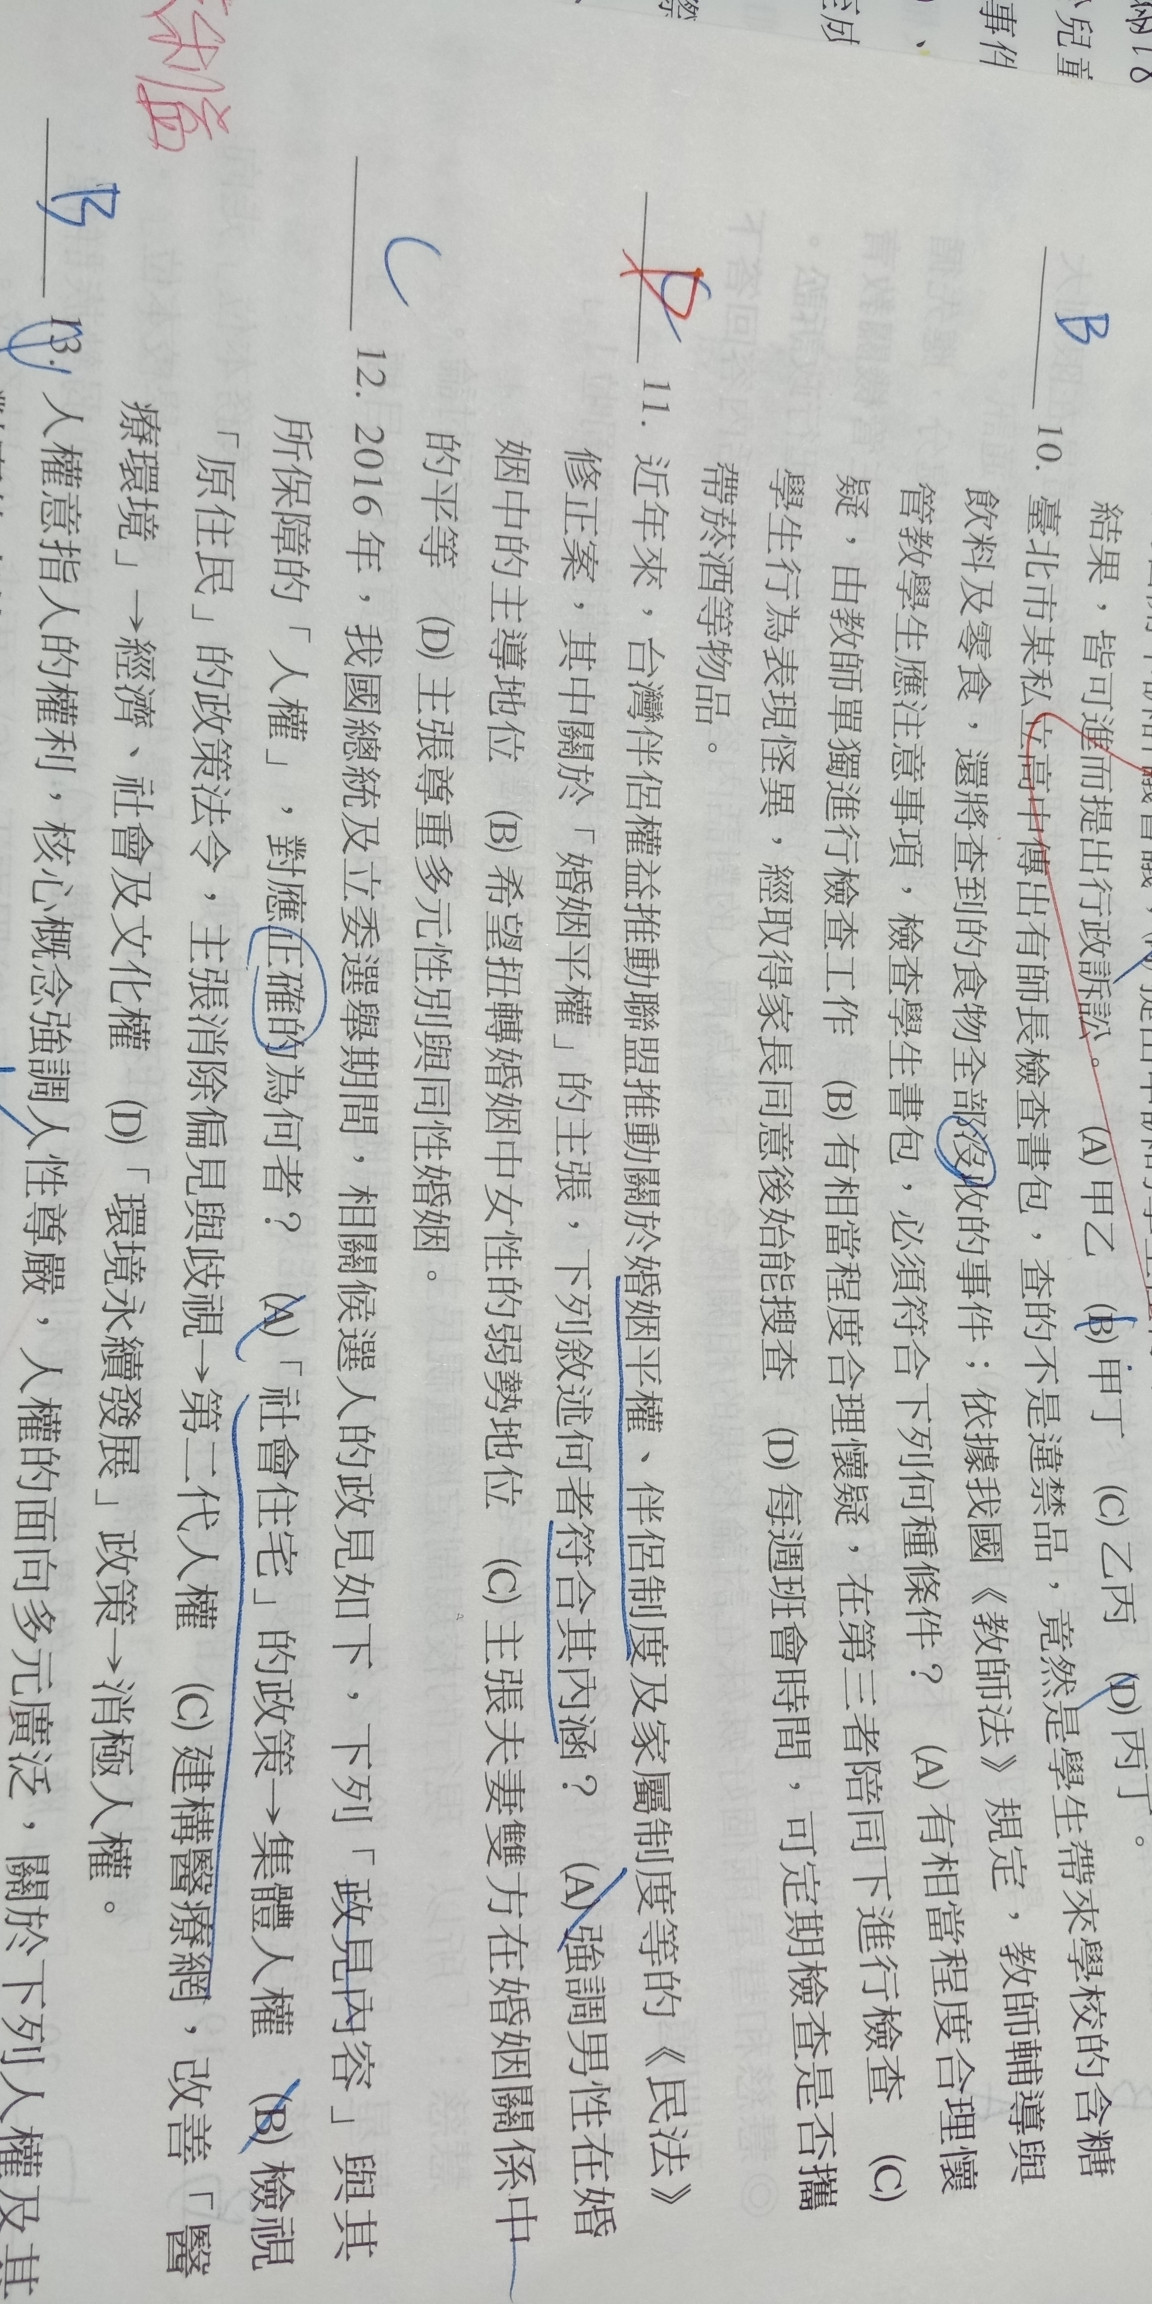 結果，皆可進而提出行政訴訟。 (A) 甲乙 (B) 甲丁 (C) 乙丙 (D) 丙丁。
B 10. 臺北市某私立高中傳出有師長檢查書包，查的不是違禁品，竟然是學生帶來學校的含糖
飲料及零食，還將查到的食物全部沒收的事件；依據我國《教師法》規定，教師輔導與
管教學生應注意事項，檢查學生書包，必須符合下列何種條件？ (A) 有相當程度合理懷
疑，由教師單獨進行檢查工作 (B) 有相當程度合理懷疑，在第三者陪同下進行檢查 (C)
學生行為表現怪異，經取得家長同意後始能搜查 (D) 每週班會時間，可定期檢查是否攜
帶菸酒等物品。
11. 近年來，台灣伴侶權益推動聯盟推動關於婚姻平權、伴侶制度及家屬制度等的《民法》
修正案，其中關於「婚姻平權」的主張，下列敘述何者符合其內涵？ (A) 強調男性在婚
姻中的主導地位 (B) 希望扭轉婚姻中女性的弱勢地位 (C) 主張夫妻雙方在婚姻關係中
的平等 (D) 主張尊重多元性別與同性婚姻。
C 12. 2016 年，我國總統及立委選舉期間，相關候選人的政見如下，下列「政見內容」與其
所保障的「人權」，對應正確的為何者？ (A)「社會住宅」的政策→集體人權 (B) 檢視
「原住民」的政策法令，主張消除偏見與歧視→第二代人權 (C) 建構醫療網，改善「醫
療環境」→經濟、社會及文化權 (D)「環境永續發展」政策→消極人權。
B 13. 人權意指人的權利，核心概念強調人性尊嚴，人權的面向多元廣泛，關於下列人權及其
兒童
事件